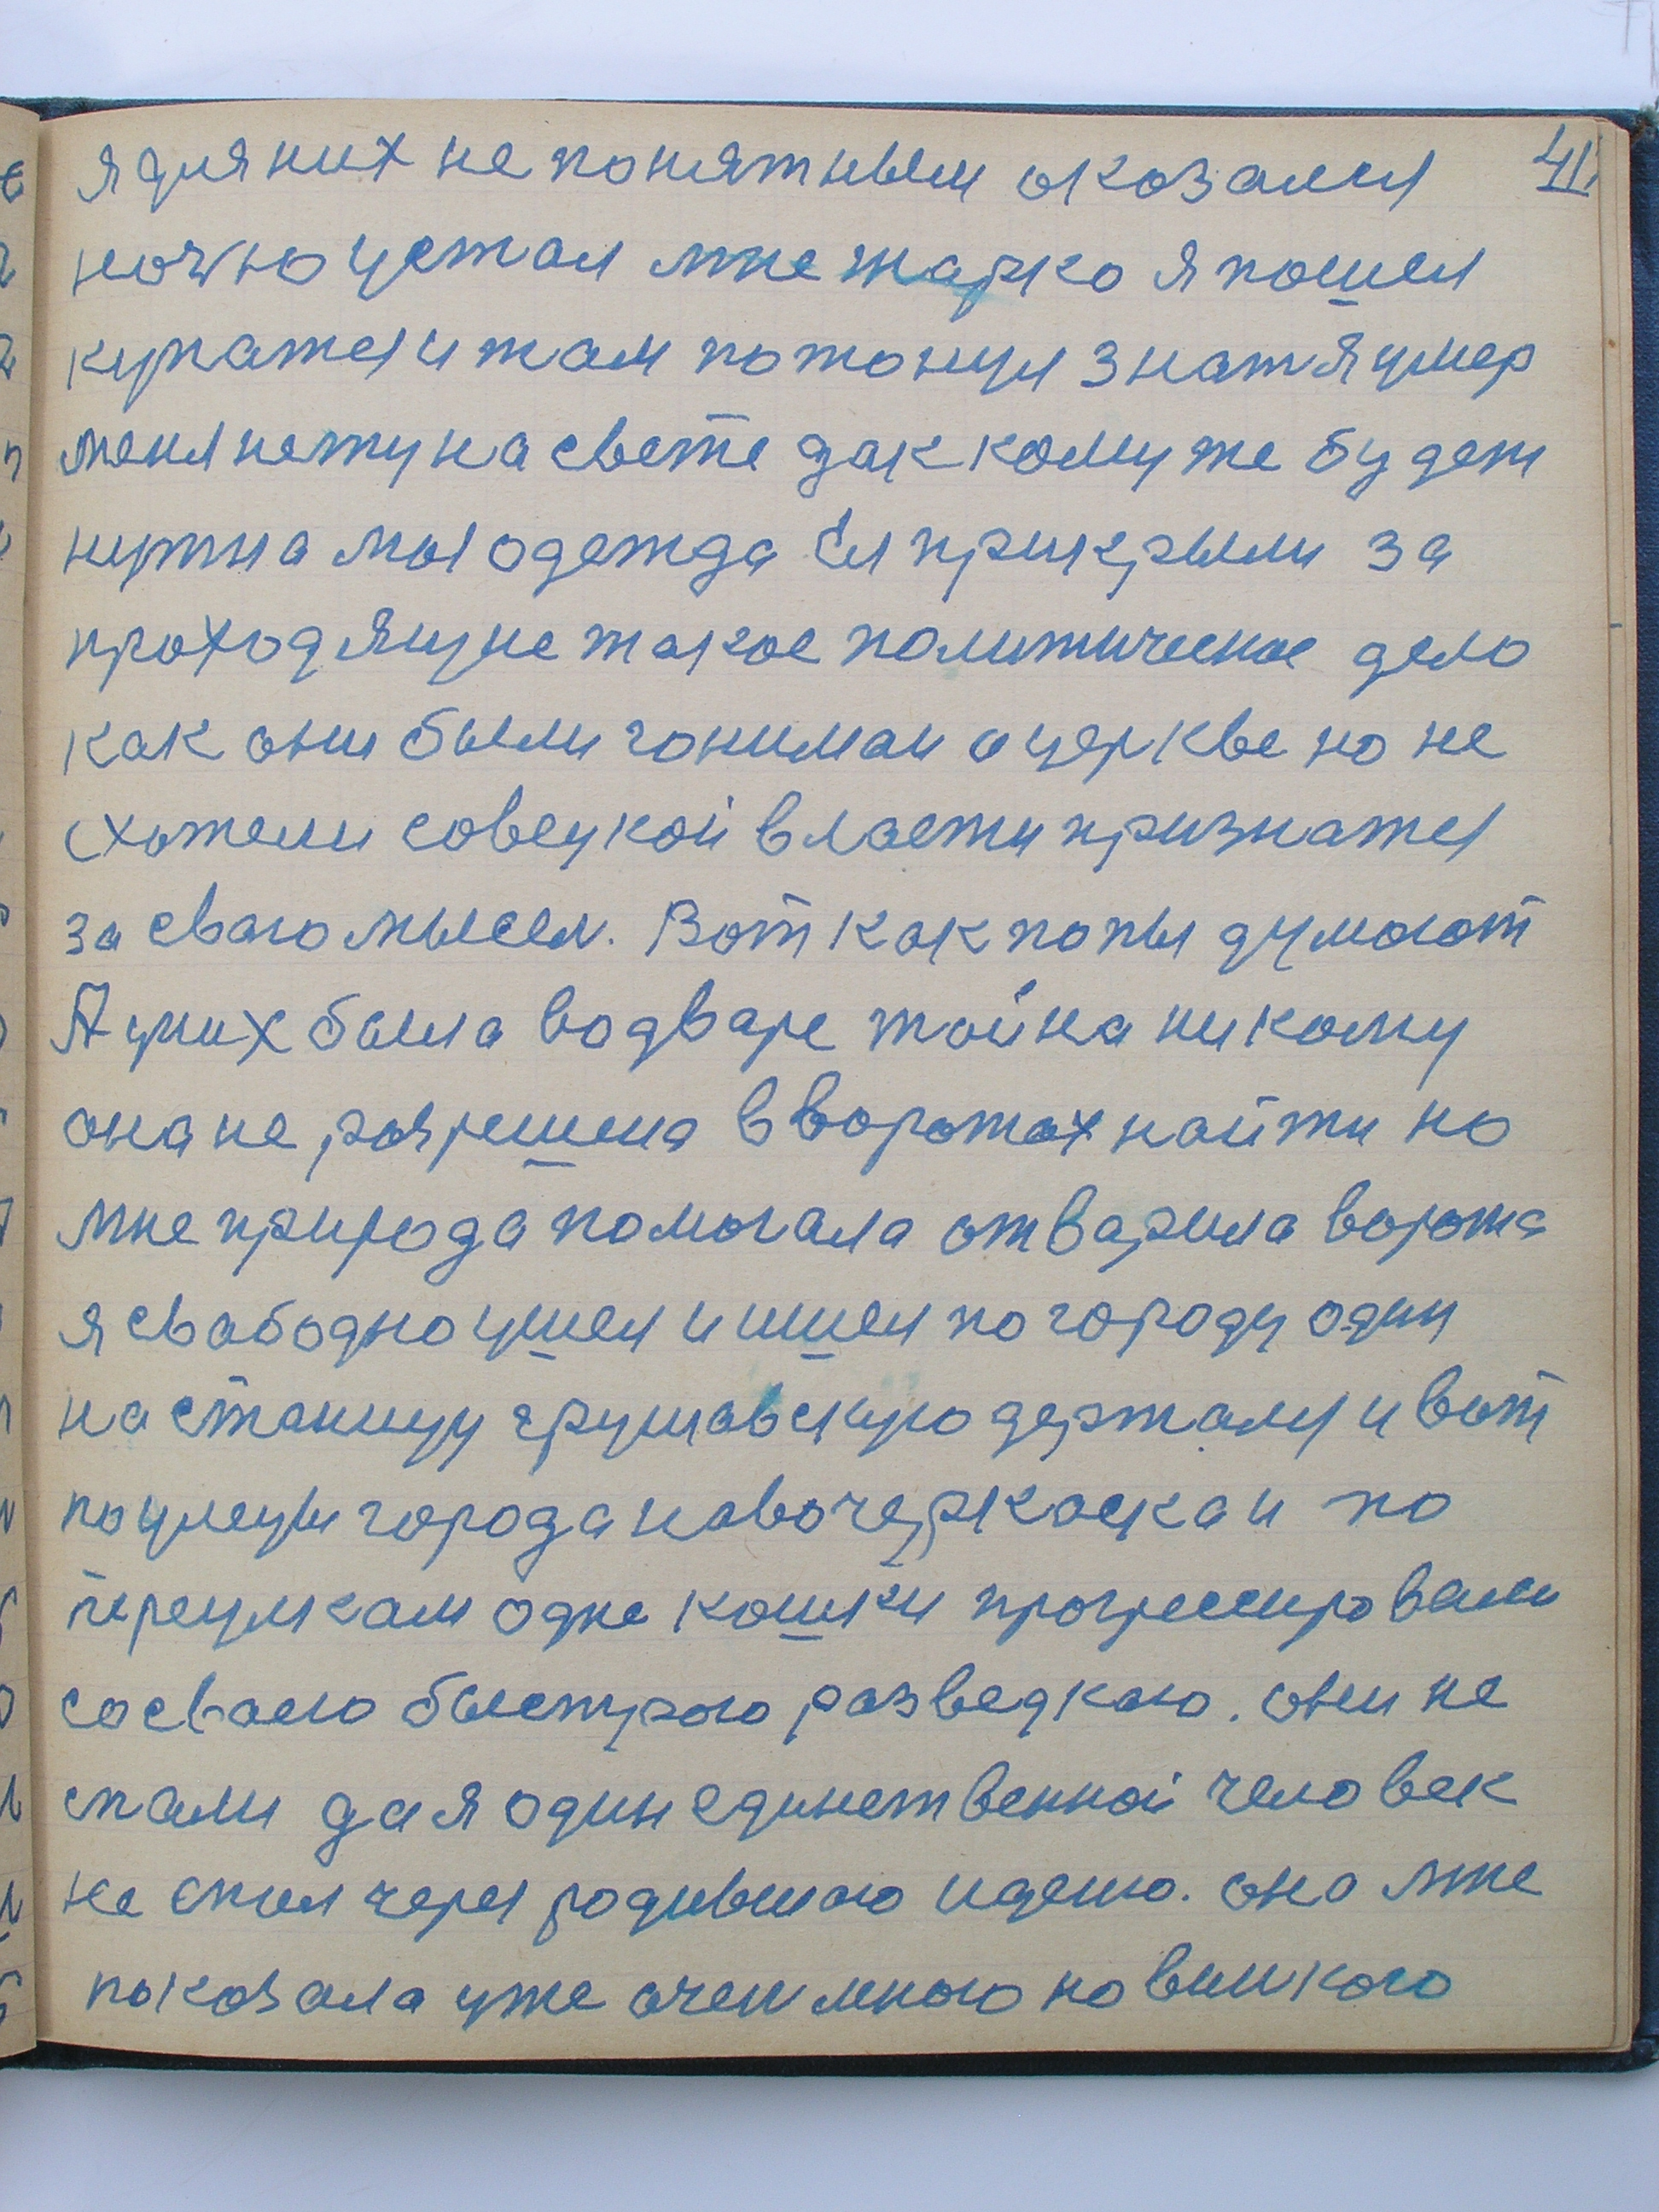 41.
я для них не понятным оказался
ночью устал мне жарко я пошел
купатся и там потонул знат я умер
меня нету на свете дак кому же будет
нужна моя одежда Ея прикрыли за
проходящие такое политическое дело
как они были гонимаи о церкве но не
схотели совецкой власти признатся
за сваю мысел. Вот как попы думают
А у них была во дваре тайна никому
она не разрешена в воротах найти но
мне природа помогала отварила ворота
я свабодно ушел и ишел по городу один
на станицу грушавскую держался и вот
по улецы города новочеркаска и по
переулкам одне кошки прогресировали
со сваею быстрою разведкаю. они не
спали да я один единственной человек
не спал через родившаю идею. она мне
показала уже очен много новинкого